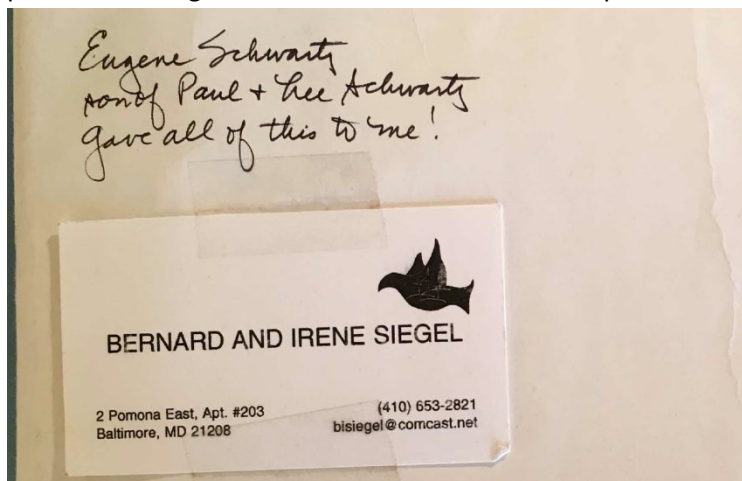 Eugene Schwartz
son of Paul + Lee Schwartz
gave all of this to me!
BERNARD AND IRENE SIEGEL
2 Pomona East, Apt. #203
(410) 653-2821
Baltimore, MD 21208
bisiegel@comcast.net